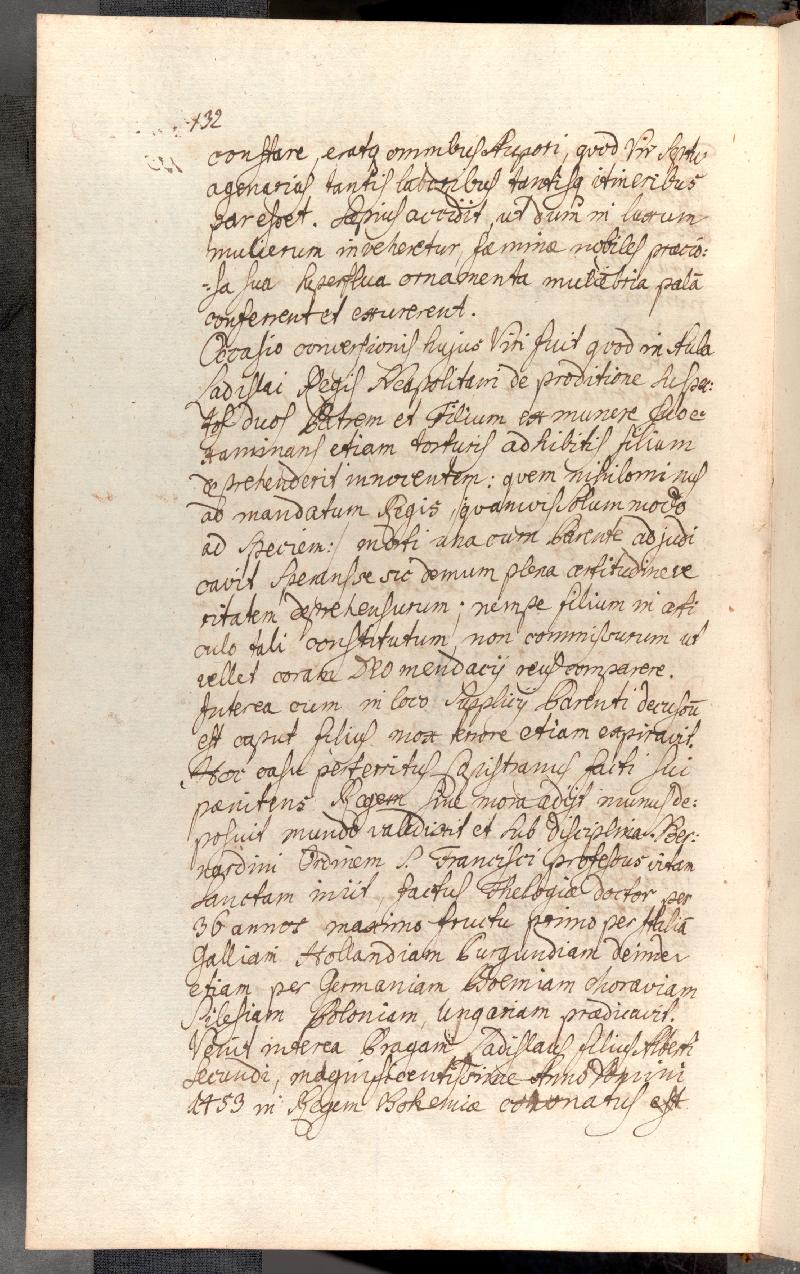 132
constare, eratq omnibus stupori, quod Vir Septu
agenarius tantis laboribus tantisq itineribus
par esset. Sæpius accidit, ut dum in luxum
mulierum inveheretur, fæminæ nobiles præcio:
=sa sua superflua ornamenta muliebria palã
conferrent et exurerent.
Occasio conversionis hujus Viri fuit quod in Aula
Ladislai Regis Neapolitani de proditione suspec:
tos duos Patrem et Filium ex munere suo e=
xaminans etiam torturis adhibitis filium
deprehenderit innocentem: quem nihilominus
ad mandatum Regis /:quamvis solummodo
ad speciem:/ morti una cum Parente adjudi
cavit sperans se sic demum plena certitudine ve
ritatem deprehensurum; nempe filium in arti
culo tali constitutum, non commissurum ut
vellet coram DEO mendacij reus comparere.
Interea cum in loco supplicij Parenti decussũ
est caput filius mox terrore etiam expiravit.
Hoc casu perterritus Capistranus facti sui
pænitens Regem sine mora adijt munus de:
posuit mundo valedixit et sub disciplina S. Ber:
nardini Ordinem S. Francisci professus vitam
sanctam iniit, factus Theologiæ doctor per
36 annos maximo fructu primo per Italiã
Galliam Hollandiam Burgundiam deinde
etiam per Germaniam Boemiam Moraviam
Silesiam Poloniam, Ungariam prædicavit.
Venit interea Pragam Ladislaus filius Alberti
secundi, magnificentissime Anno Domini
1453 in Regem Bohemiæ coronatus est